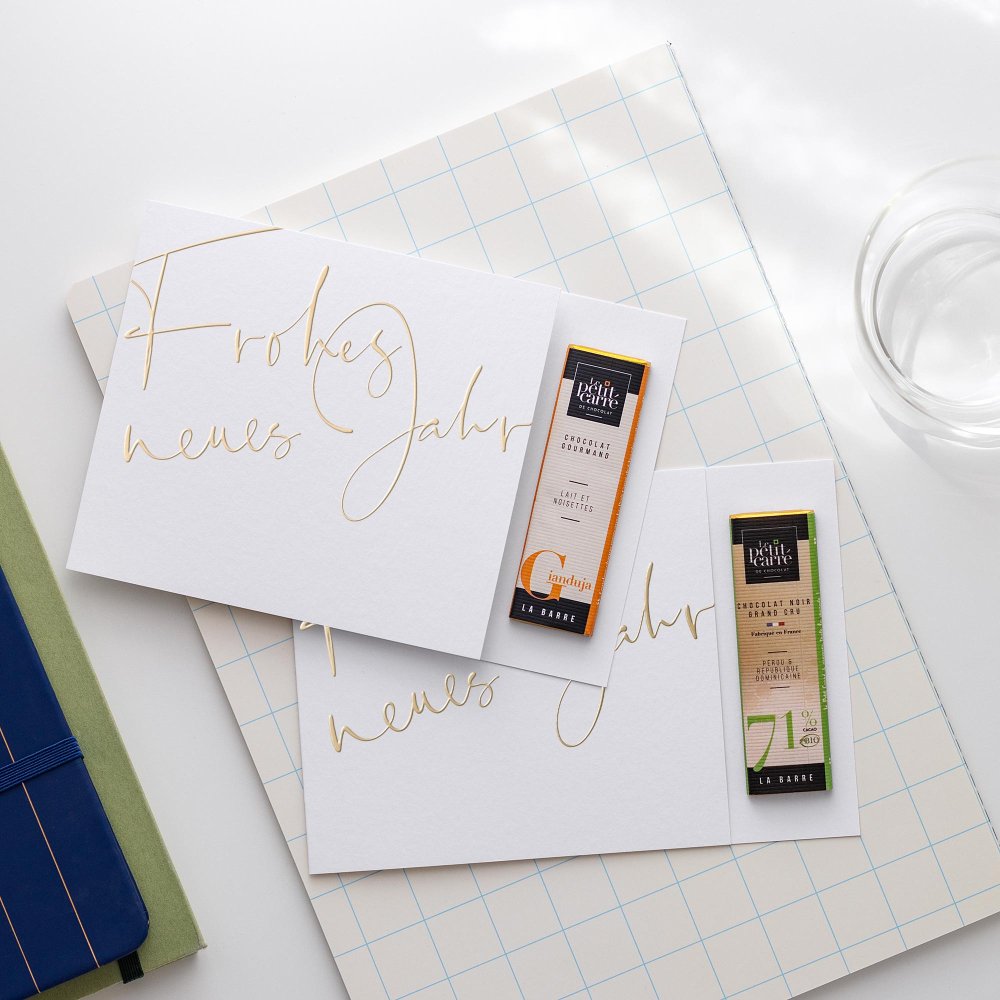 Frohes
neues Jahr
Le
pétit
carré
DE CHOCOLAT
CHOCOLAT
GOURMAND
LAIT ET
NOISETTES
Gianduja
LA BARRE
Jahr
neues
Le
pétit
carré
DE CHOCOLAT
CHOCOLAT NOIR
GRAND CRU
Fabriqué en France
PÉROU &
RÉPUBLIQUE
DOMINICAINE
71%
CACAO
BIO
LA BARRE